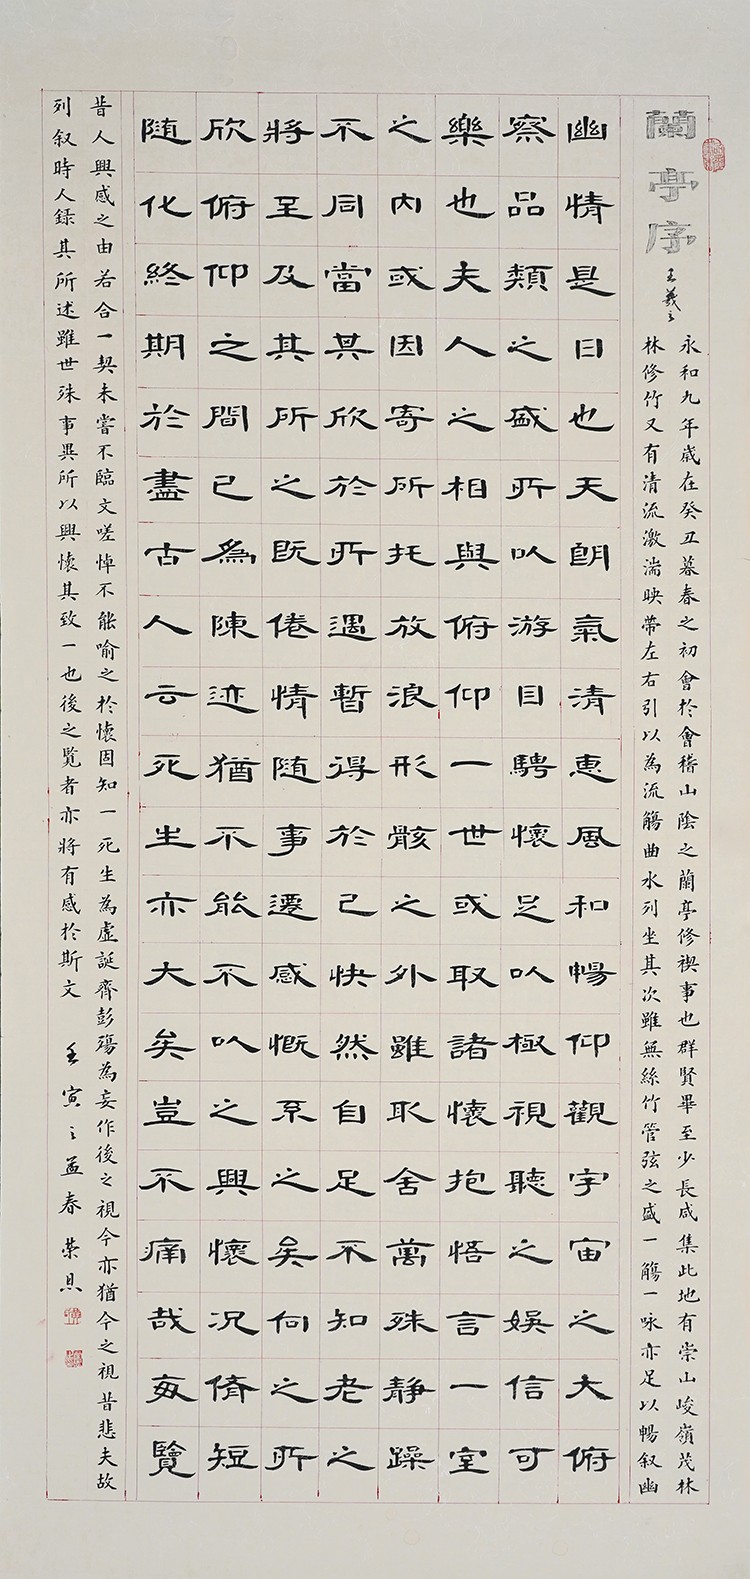 蘭亭序
王羲之
永和九年歲在癸丑暮春之初會於會稽山陰之蘭亭修禊事也群賢畢至少長咸集此地有崇山峻嶺茂林
林修竹又有清流激湍映帶左右引以為流觴曲水列坐其次雖無絲竹管弦之盛一觴一咏亦足以暢叙幽
幽情是日也天朗氣清惠風和暢仰觀宇宙之大俯
察品類之盛所以游目騁懷足以極視聽之娛信可
樂也夫人之相與俯仰一世或取諸懷抱悟言一室
之內或因寄所托放浪形骸之外雖取舍萬殊靜躁
不同當其欣於所遇暫得於己快然自足不知老之
將至及其所之既倦情隨事遷感慨系之矣向之所
欣俯仰之間已為陳迹猶不能不以之興懷況脩短
隨化終期於盡古人云死生亦大矣豈不痛哉每覽
昔人興感之由若合一契未嘗不臨文嗟悼不能喻之於懷固知一死生為虛誕齊彭殤為妄作後之視今亦猶今之視昔悲夫故
列叙時人錄其所述雖世殊事異所以興懷其致一也後之覽者亦將有感於斯文 壬寅之孟春